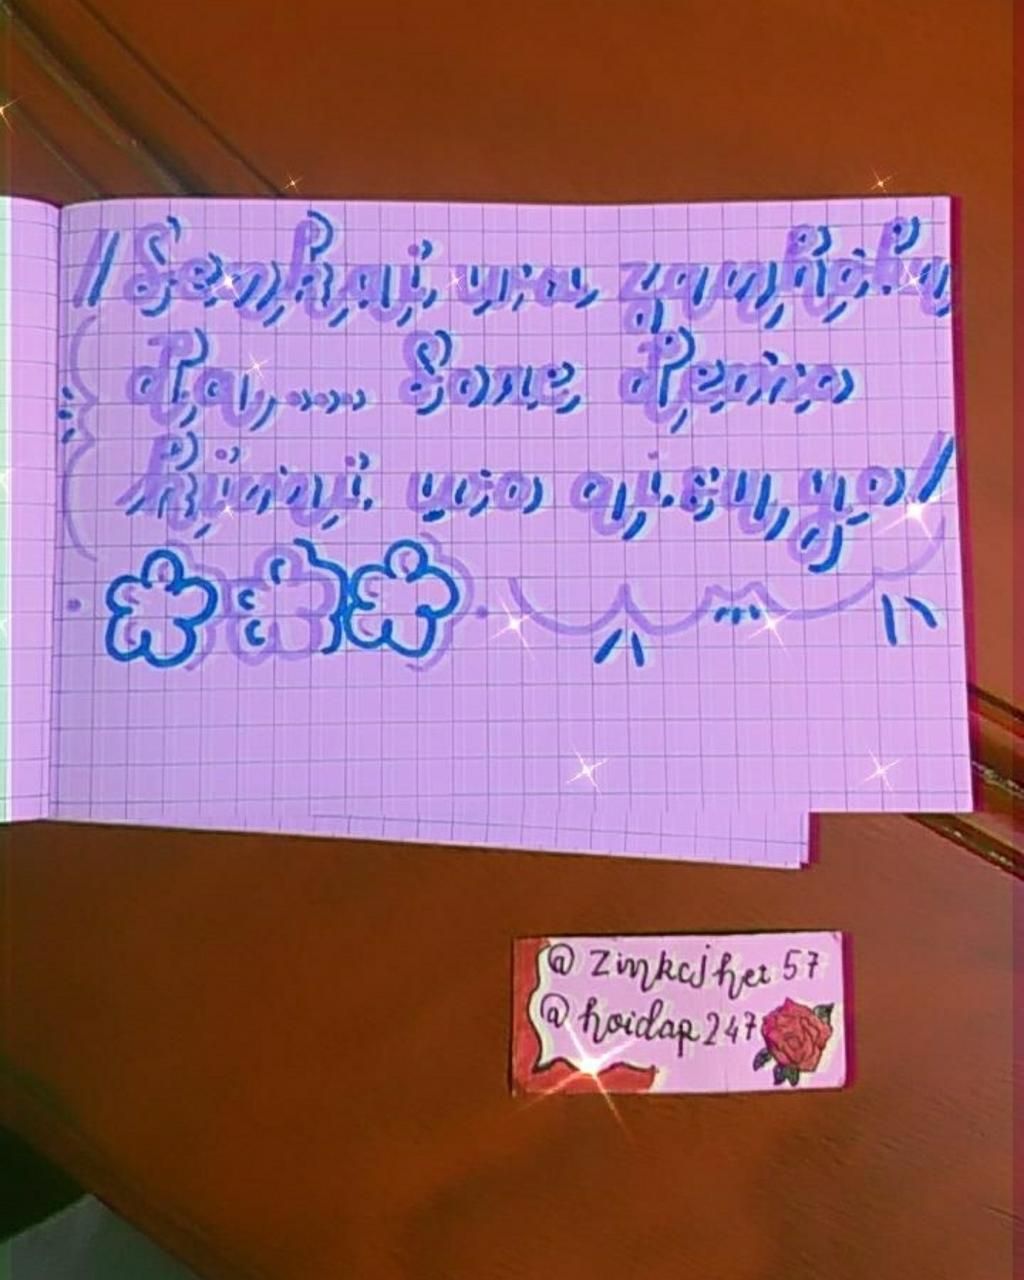 // Senkai wa zankoku
da.... Sore demo
kimi wo aisu, yo//
@ zinkcjhet 57
@ hoidap 247